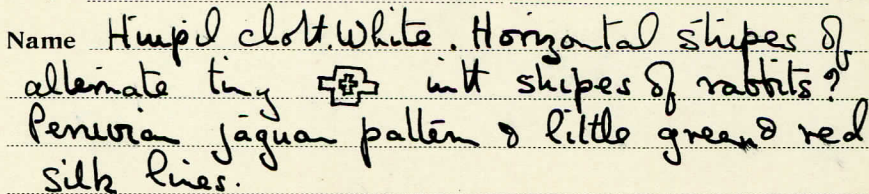 Name Huipil cloth. White. Horizontal stripes of
alternate tiny with stripes of rabbits?
Peruvian jaguar pattern & little green & red
silk lines.